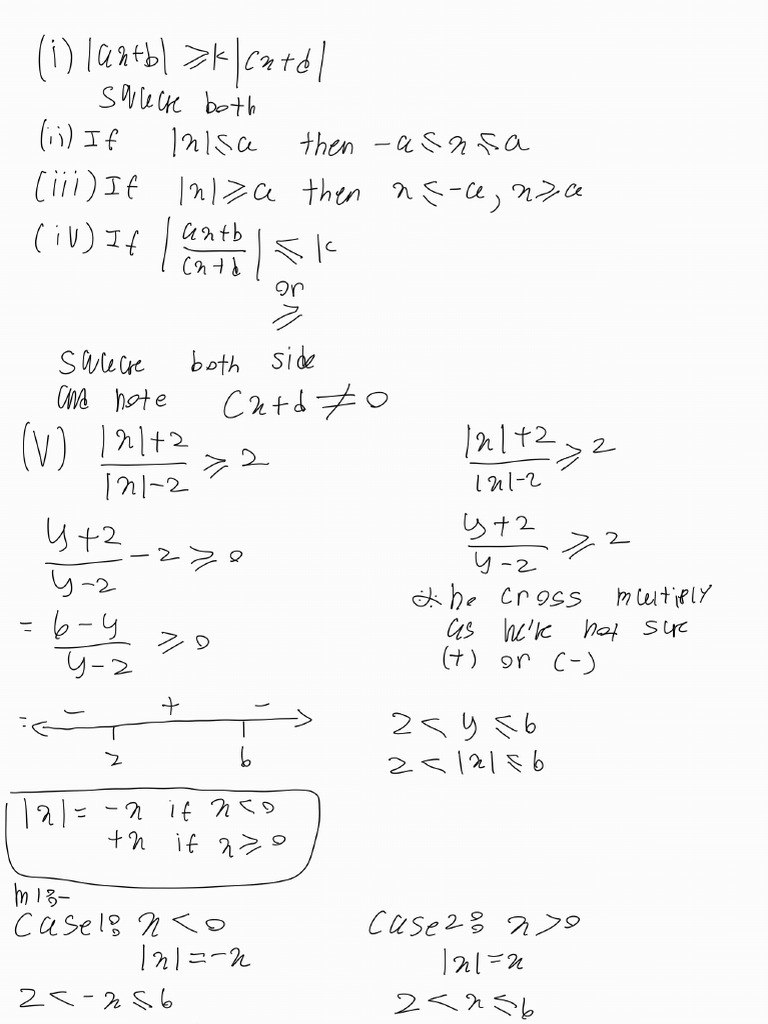 (i) |ax+b| ≥ k|cx+d|
square both
(ii) If |x| ≤ a then -a ≤ x ≤ a
(iii) If |x| ≥ a then x ≤ -a, x ≥ a
(iv) If |(ax+b)/(cx+d)| ≤ k
or
≥
square both side
and note cx+d ≠ 0
(V) (|x|+2)/(|x|-2) ≥ 2
(y+2)/(y-2) - 2 ≥ 0
= (6-y)/(y-2) ≥ 0
= - + -
2 6
|x|+2/|x|-2 ≥ 2
(y+2)/(y-2) ≥ 2
cross multiply
as we're not sure
(+) or (-)
2 < y ≤ 6
2 < |x| ≤ 6
|x| = -x if x < 0
+x if x ≥ 0
m1:-
Case1: x < 0
|x| = -x
2 < -x ≤ 6
Case2: x > 0
|x| = x
2 < x ≤ 6